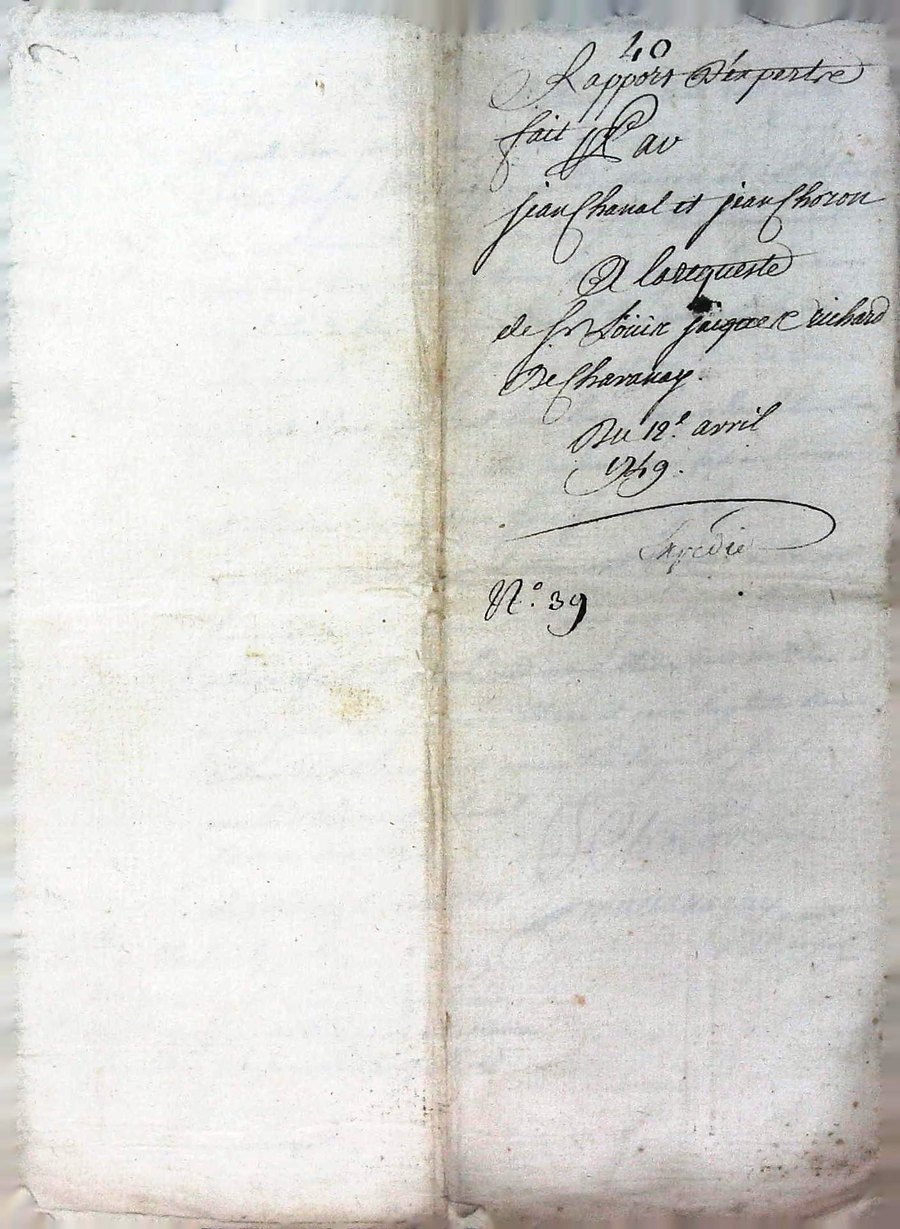 40
Rapport D'expertre
fait Par
jean Chanal et jean Choron
A la requeste
de Sr Loüis jacques richard
De Chavanay.
Du 12e. avril
1749.
Expedié
N.° 39